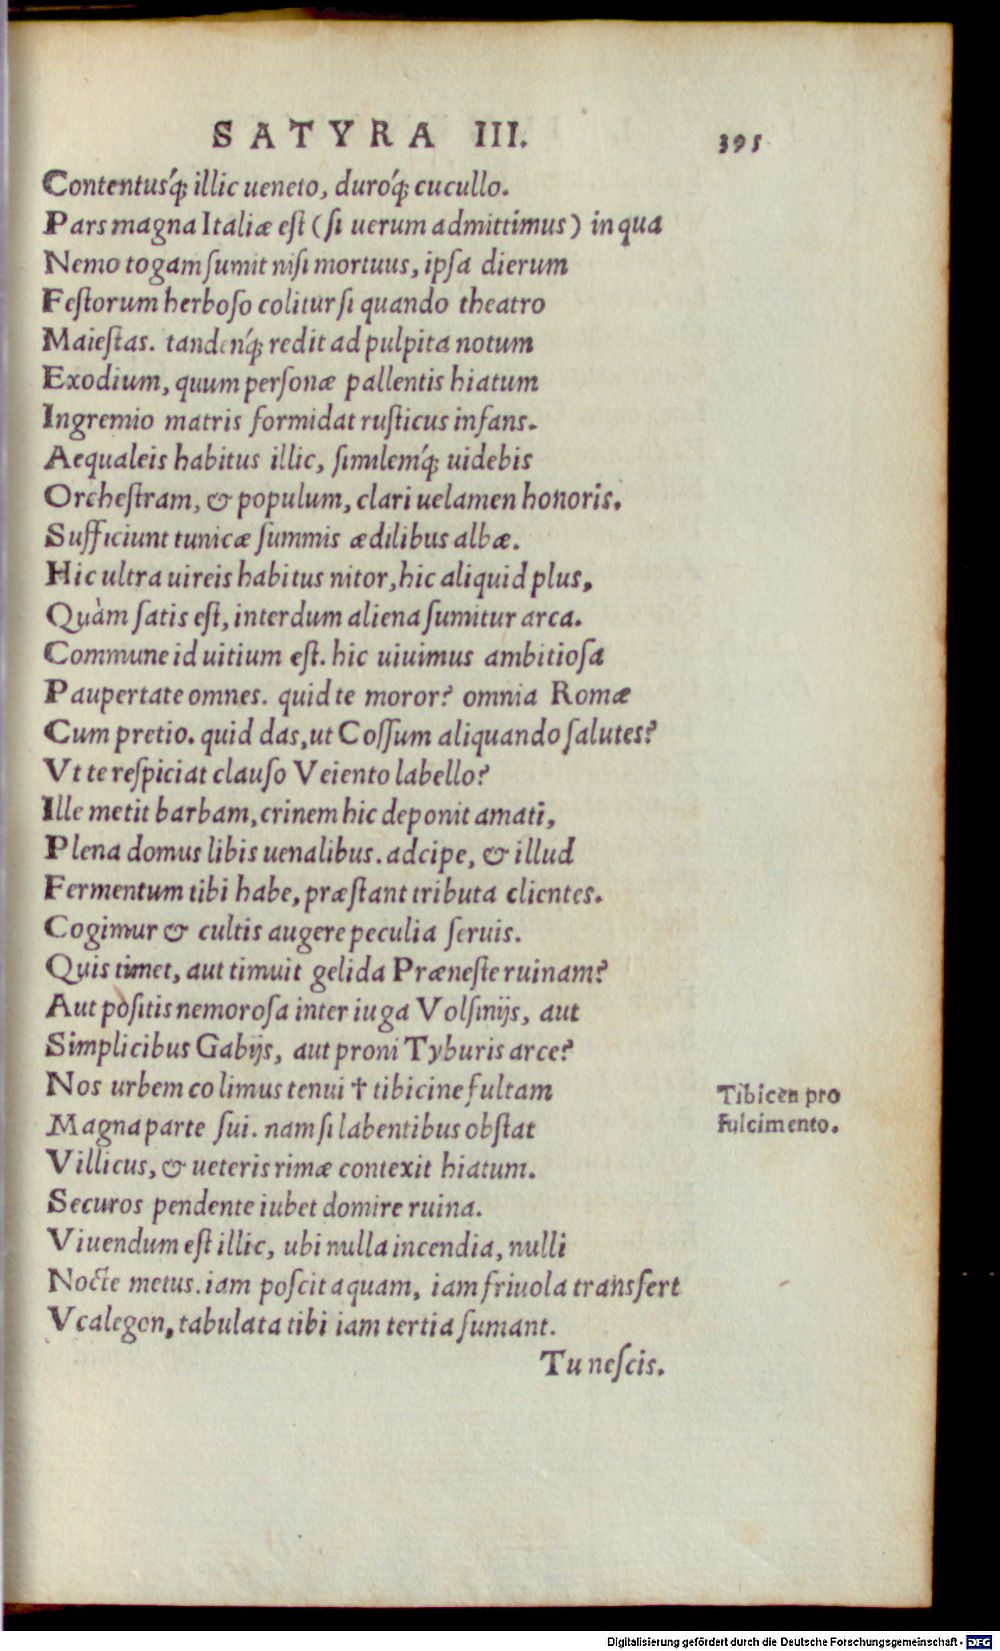 SATYRA III. 395
Contentusq́; illic ueneto, duroq́; cucullo.
Pars magna Italiæ est (si uerum admittimus) in qua
Nemo togam sumit nisi mortuus, ipsa dierum
Festorum herboso colitur si quando theatro
Maiestas. tandenq́; redit ad pulpita notum
Exodium, quum personæ pallentis hiatum
In gremio matris formidat rusticus infans.
Aequaleis habitus illic, similemq́; uidebis
Orchestram, & populum, clari uelamen honoris.
Sufficiunt tunicæ summis ædilibus albæ.
Hic ultra uireis habitus nitor, hic aliquid plus,
Quàm satis est, interdum aliena sumitur arca.
Commune id uitium est. hic uiuimus ambitiosa
Paupertate omnes. quid te moror? omnia Romæ
Cum pretio. quid das, ut Cossum aliquando salutes?
Vt te respiciat clauso Veiento labello?
Ille metit barbam, crinem hic deponit amati,
Plena domus libis uenalibus. adcipe, & illud
Fermentum tibi habe, præstant tributa clientes.
Cogimur & cultis augere peculia seruis.
Quis timet, aut timuit gelida Præneste ruinam?
Aut positis nemorosa inter iuga Volsinijs, aut
Simplicibus Gabijs, aut proni Tyburis arce?
Nos urbem colimus tenui † tibicine fultam
Tibicen pro
Magna parte sui. nam si labentibus obstat
fulcimento.
Villicus, & ueteris rimæ contexit hiatum.
Securos pendente iubet domire ruina.
Viuendum est illic, ubi nulla incendia, nulli
Nocte metus. iam poscit aquam, iam friuola transfert
Vcalegon, tabulata tibi iam tertia fumant.
Tu nescis.
Digitalisierung gefördert durch die Deutsche Forschungsgemeinschaft - DFG